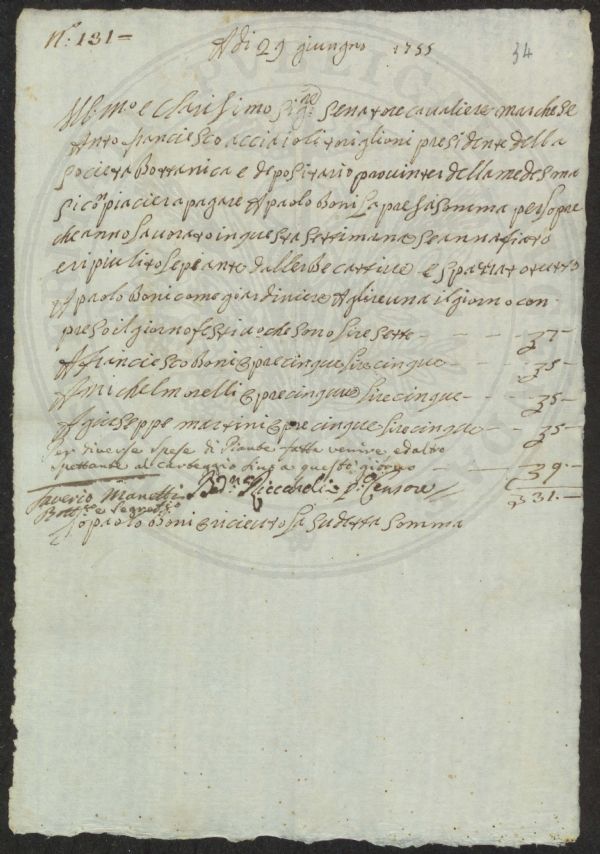 N.º 131=
A di 29 giungno 1755
34
Ill.mo e Clarisimo Sig.re Senatore cavaliere marchese
Anto Franciesco acciaioli toriglioni presidente della
Societa Bottanica e depositario della medesma
si conpiaciera pagare A paolo Boni La presa Somma per lopre
che anno lavorato in questa settimana
e ripulito le piante dallerbe cattive e spazzato
A paolo Boni come giardiniere A lire una il giorno con
preso il giorno festivo che sono lire sette - - - 7-
A franciesco Boni opre cinque lire cinque - - - 5-
A michel morelli opre cinque lire cinque - - - 5-
A giuseppe martini opre cinque lire cinque - - - 5-
Per diverse spese di Piante fatte venire, ed altro
spettante al carteggio fino a questo giorno - - - 9.-
Saverio Manetti Riccardi P.º Censore 31.-
Bott.co e Segret.rio
Io paolo Boni o riceuto la sudetta somma